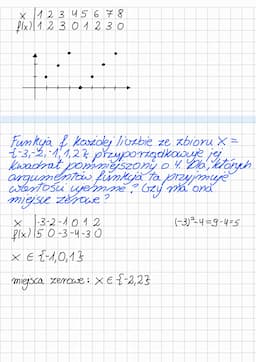 x | 1 2 3 4 5 6 7 8
f(x) | 1 2 3 0 1 2 3 0
Funkcja f każdej liczbie ze zbioru X =
{-3,-2,-1,1,2}, przyporządkowuje jej
kwadrat pomniejszony o 4. Dla, których
argumentów funkcja ta przyjmuje
wartości ujemne? Czy ma ona
miejsce zerowe?
x | -3 -2 -1 0 1 2
f(x) | 5 0 -3 -4 -3 0
(-3)²-4=9-4=5
x ∈ {-1,0,1}
miejsca zerowe: x ∈ {-2,2}